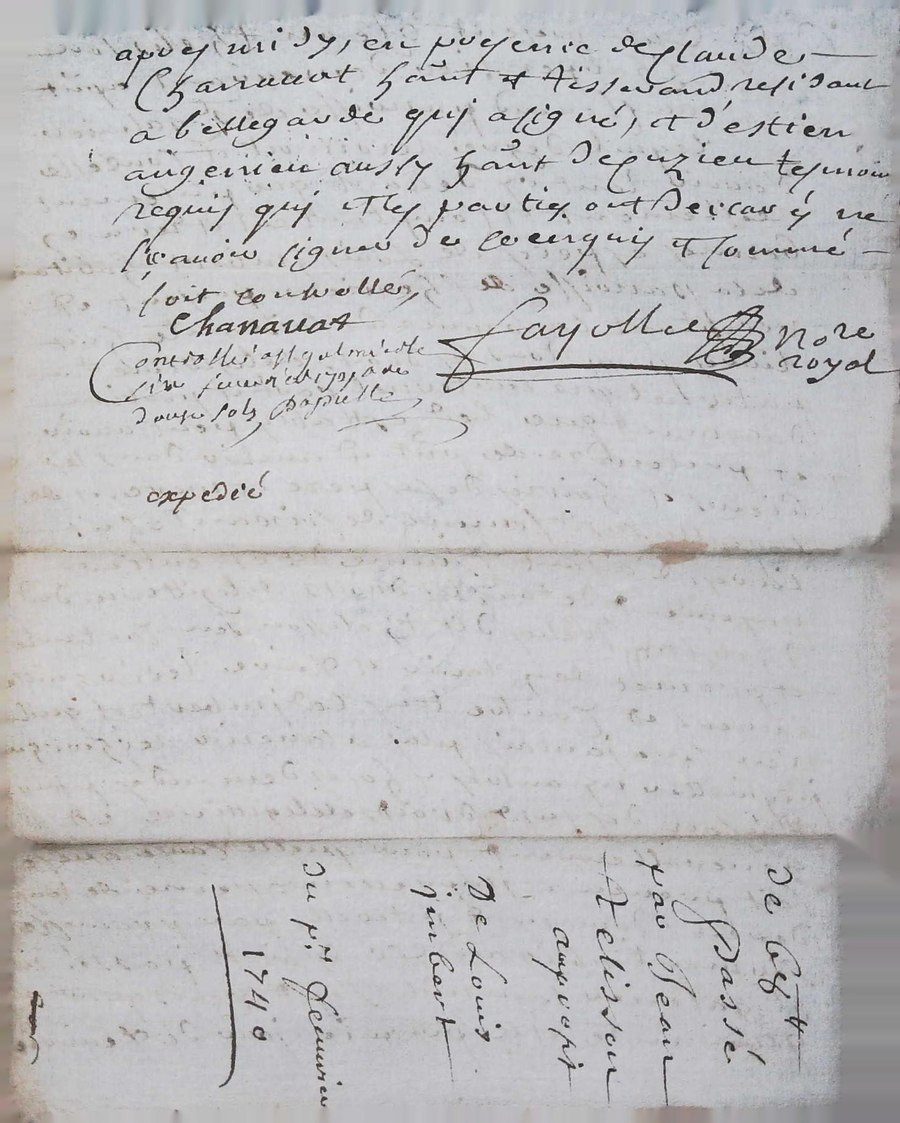 apres midy, en presence de Claude
Charrauat habt et tisserand residant
a bellegarde qui a signé, et d'estien
angenieu aussy habt de cuzieu tesmoin
requis qui et les parties ont declaré ne
scauoir signer de ce enquis et sommé
soit controllé,
Charrauat
Fayolle Nore
royal
Controllé a St galmier le
fevrier 1740
douze sols
expedié
de 68 tt
Passé
par Jean
Telisson
au profit
De Louis
jmbert
du pr. feuurier
1740